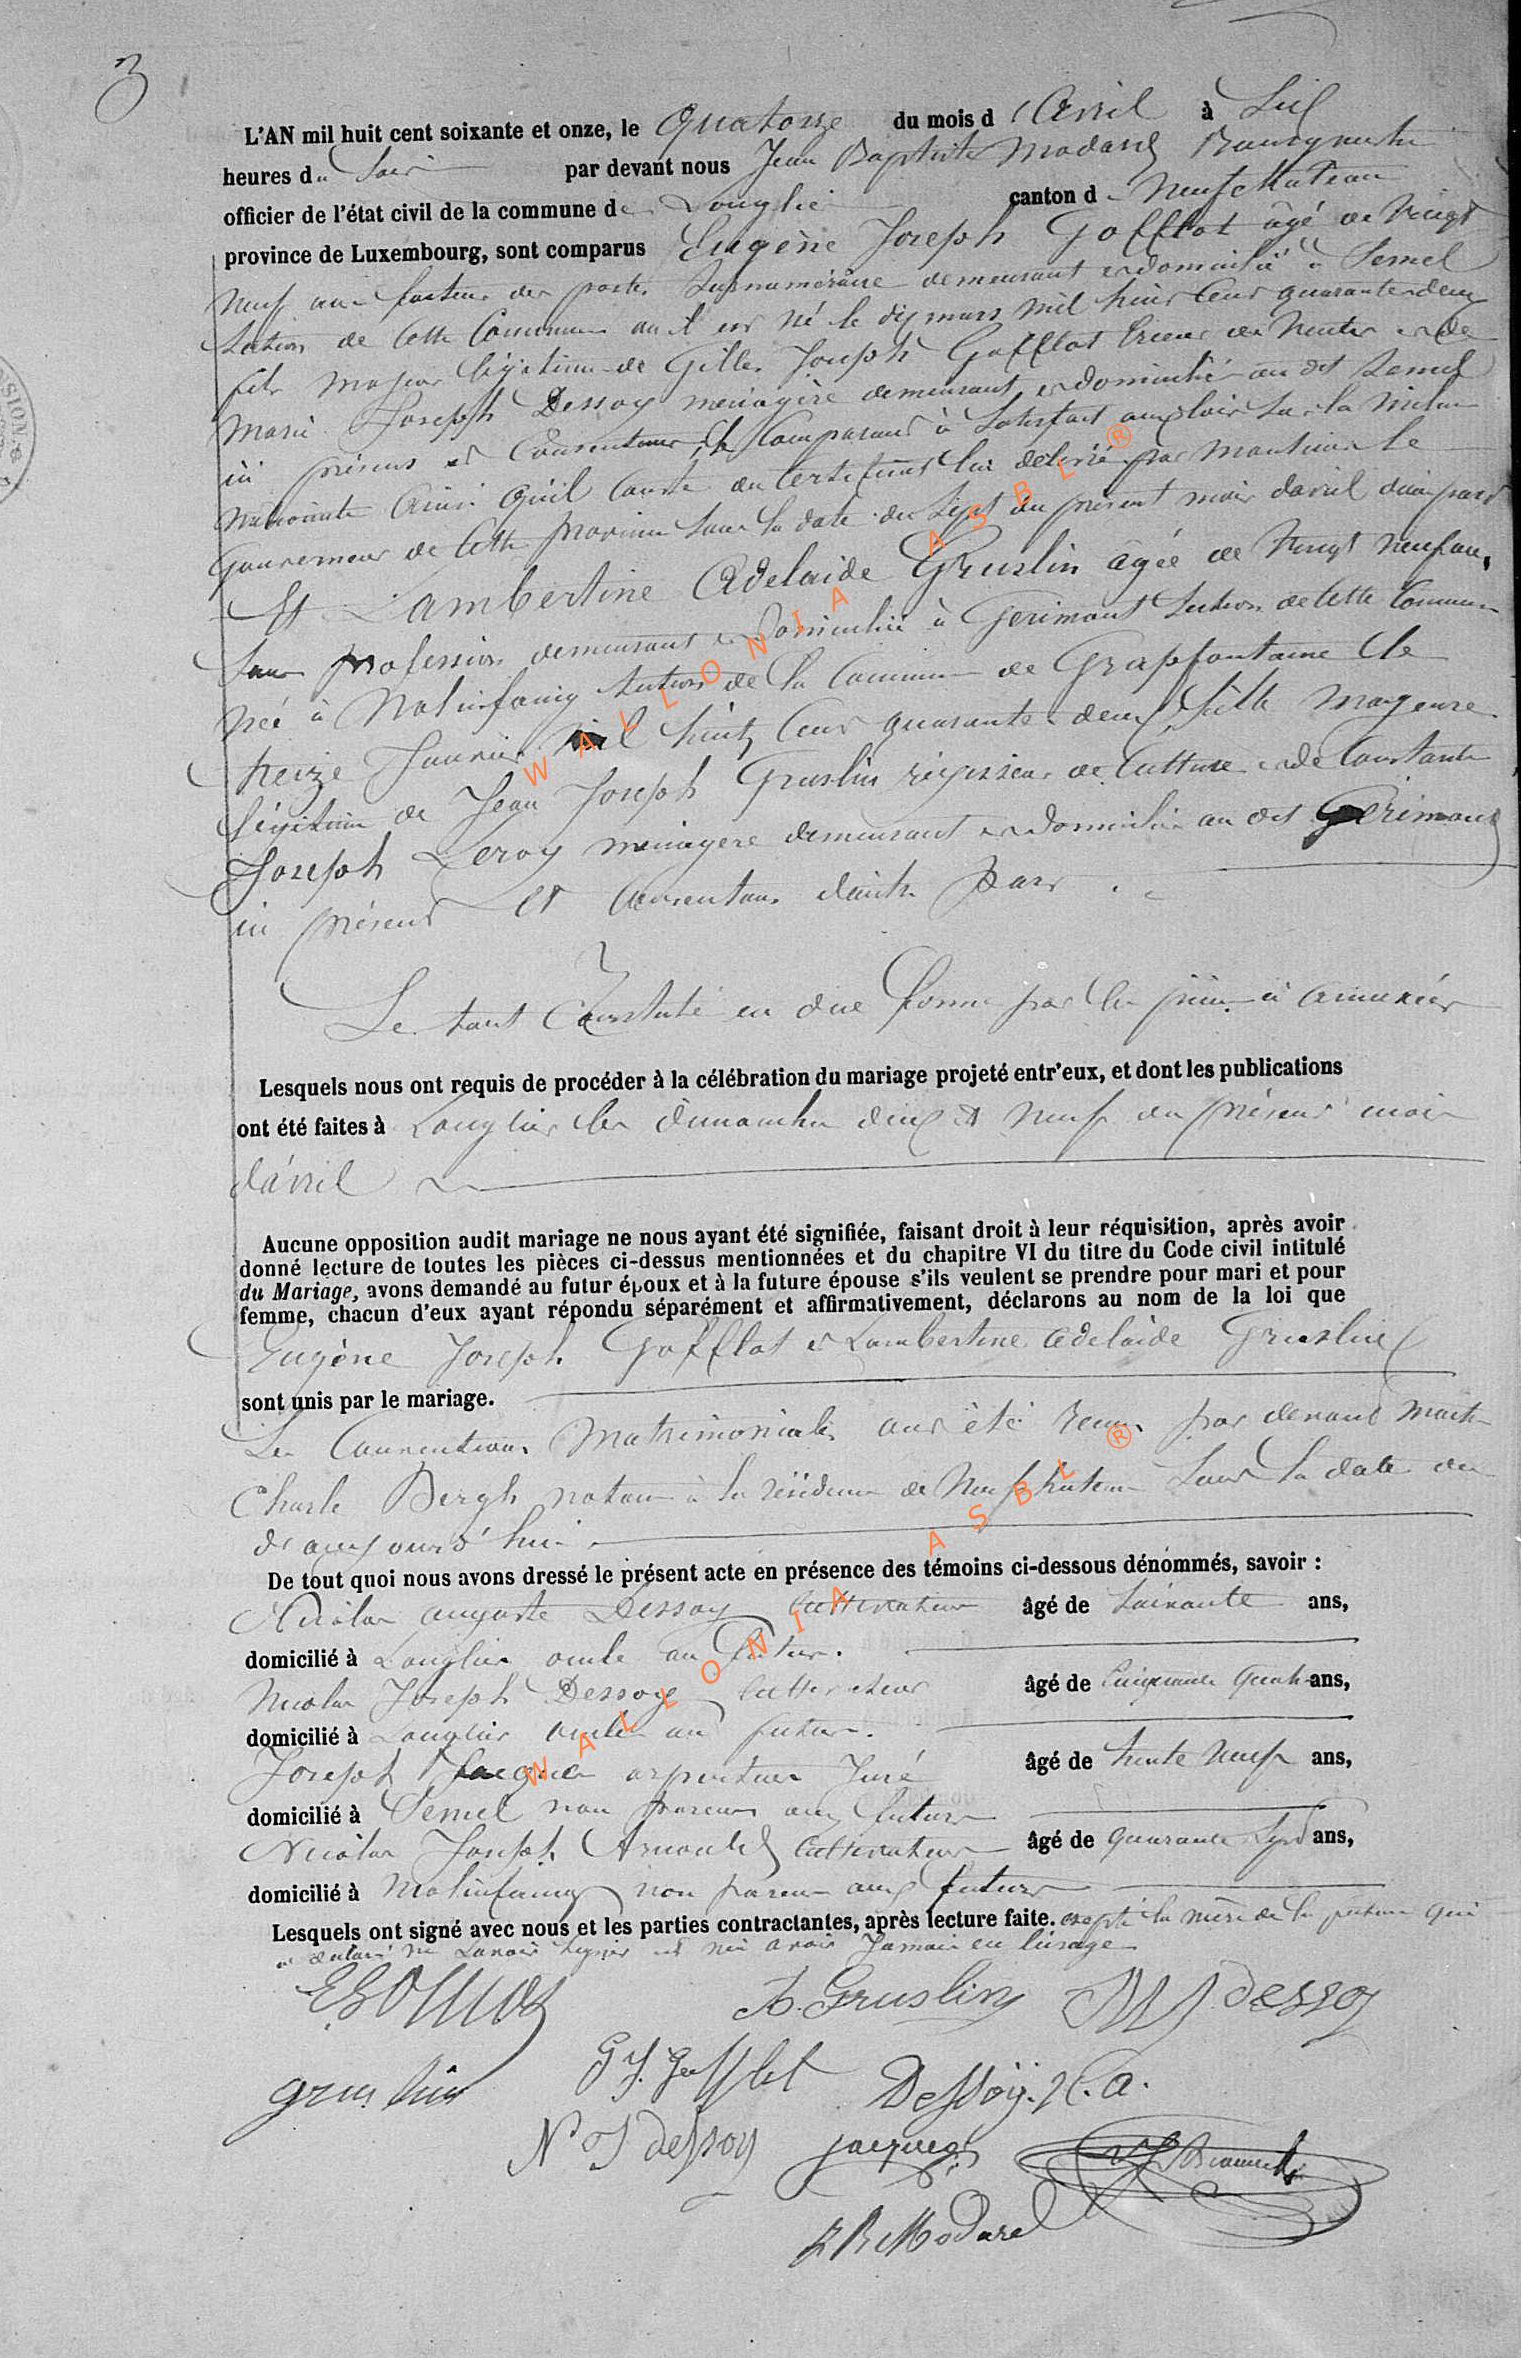 3
L'AN mil huit cent soixante et onze, le Quatorze du mois d'Avril à Six
heures du Soir par devant nous Jean Baptiste Modard Bourgmestre
officier de l'état civil de la commune de Longlier canton de Neufchateau
province de Luxembourg, sont comparus Eugène Joseph Gofflot âgé de Vingt
Neuf ans facteur des postes Surnuméraire demeurant et domicilié à Semel
Section de Cette Commune où il est né le dix mars mil huit Cent quarante deux
fils majeur légitime de Gilles Joseph Gofflot et de
Marie Joseph Dessoy ménagère demeurant et domiciliés au dit Semel
ici présens et Consentans, le Comparant à Satisfait aux loix Sur la Milice
Nationale Ainsi qu'il Conste du Certificat lui délivré par Monsieur le
Gouverneur de Cette Province Sous la date du Sept du présent mois d'avril d'une part
Et Lambertine Adelaïde Gruslin âgée de Vingt Neuf ans,
Sans profession demeurant et domiciliée à Gerimont Section de Cette Commune
née à Molinfaing Section de la Commune de Grapfontaine le
treize Janvier mil huit Cent quarante deux fille majeure
légitime de Jean Joseph Gruslin régisseur de Culture et de Constante
Joseph Leroy ménagère demeurant et domiciliés au dit Gerimont
ici présens et Consentans d'autre part.
Le tout Constaté en due forme par les pièces ci annexées
Lesquels nous ont requis de procéder à la célébration du mariage projeté entr'eux, et dont les publications
ont été faites à Longlier les dimanches deux et Neuf du présent mois
d'avril
Aucune opposition audit mariage ne nous ayant été signifiée, faisant droit à leur réquisition, après avoir
donné lecture de toutes les pièces ci-dessus mentionnées et du chapitre VI du titre du Code civil intitulé
du Mariage, avons demandé au futur époux et à la future épouse s'ils veulent se prendre pour mari et pour
femme, chacun d'eux ayant répondu séparément et affirmativement, déclarons au nom de la loi que
Eugène Joseph Gofflot et Lambertine Adelaïde Gruslin
sont unis par le mariage.
Les Conventions Matrimoniales ont été reçues par devant Maitre
Charle Bergh notaire à la résidence de Neufchateau Sous la date du
d'aujourd'hui
De tout quoi nous avons dressé le présent acte en présence des témoins ci-dessous dénommés, savoir :
Nicolas Auguste Dessoy Cultivateur âgé de Soixante ans,
domicilié à Longlier oncle au futur.
Nicolas Joseph Dessoy Cultivateur âgé de Cinquante Quatre ans,
domicilié à Longlier oncle au futur.
Joseph Jacques arpenteur Juré âgé de trente Neuf ans,
domicilié à Semel non parent aux futurs
Nicolas Joseph Arnould Cultivateur âgé de quarante Sept ans,
domicilié à Molinfaing non parent aux futurs
Lesquels ont signé avec nous et les parties contractantes, après lecture faite. excepté la mère de la future qui
a déclaré ne Savoir Signer et n'en avoir Jamais eu l'usage
E Gofflot A. Gruslin M J Dessoy
gruslin G J. Gofflot Dessoÿ. N. A.
N J dessoy jacques NJ Arnould
J B Modard
WALLONIA ASBL ®
WALLONIA ASBL ®